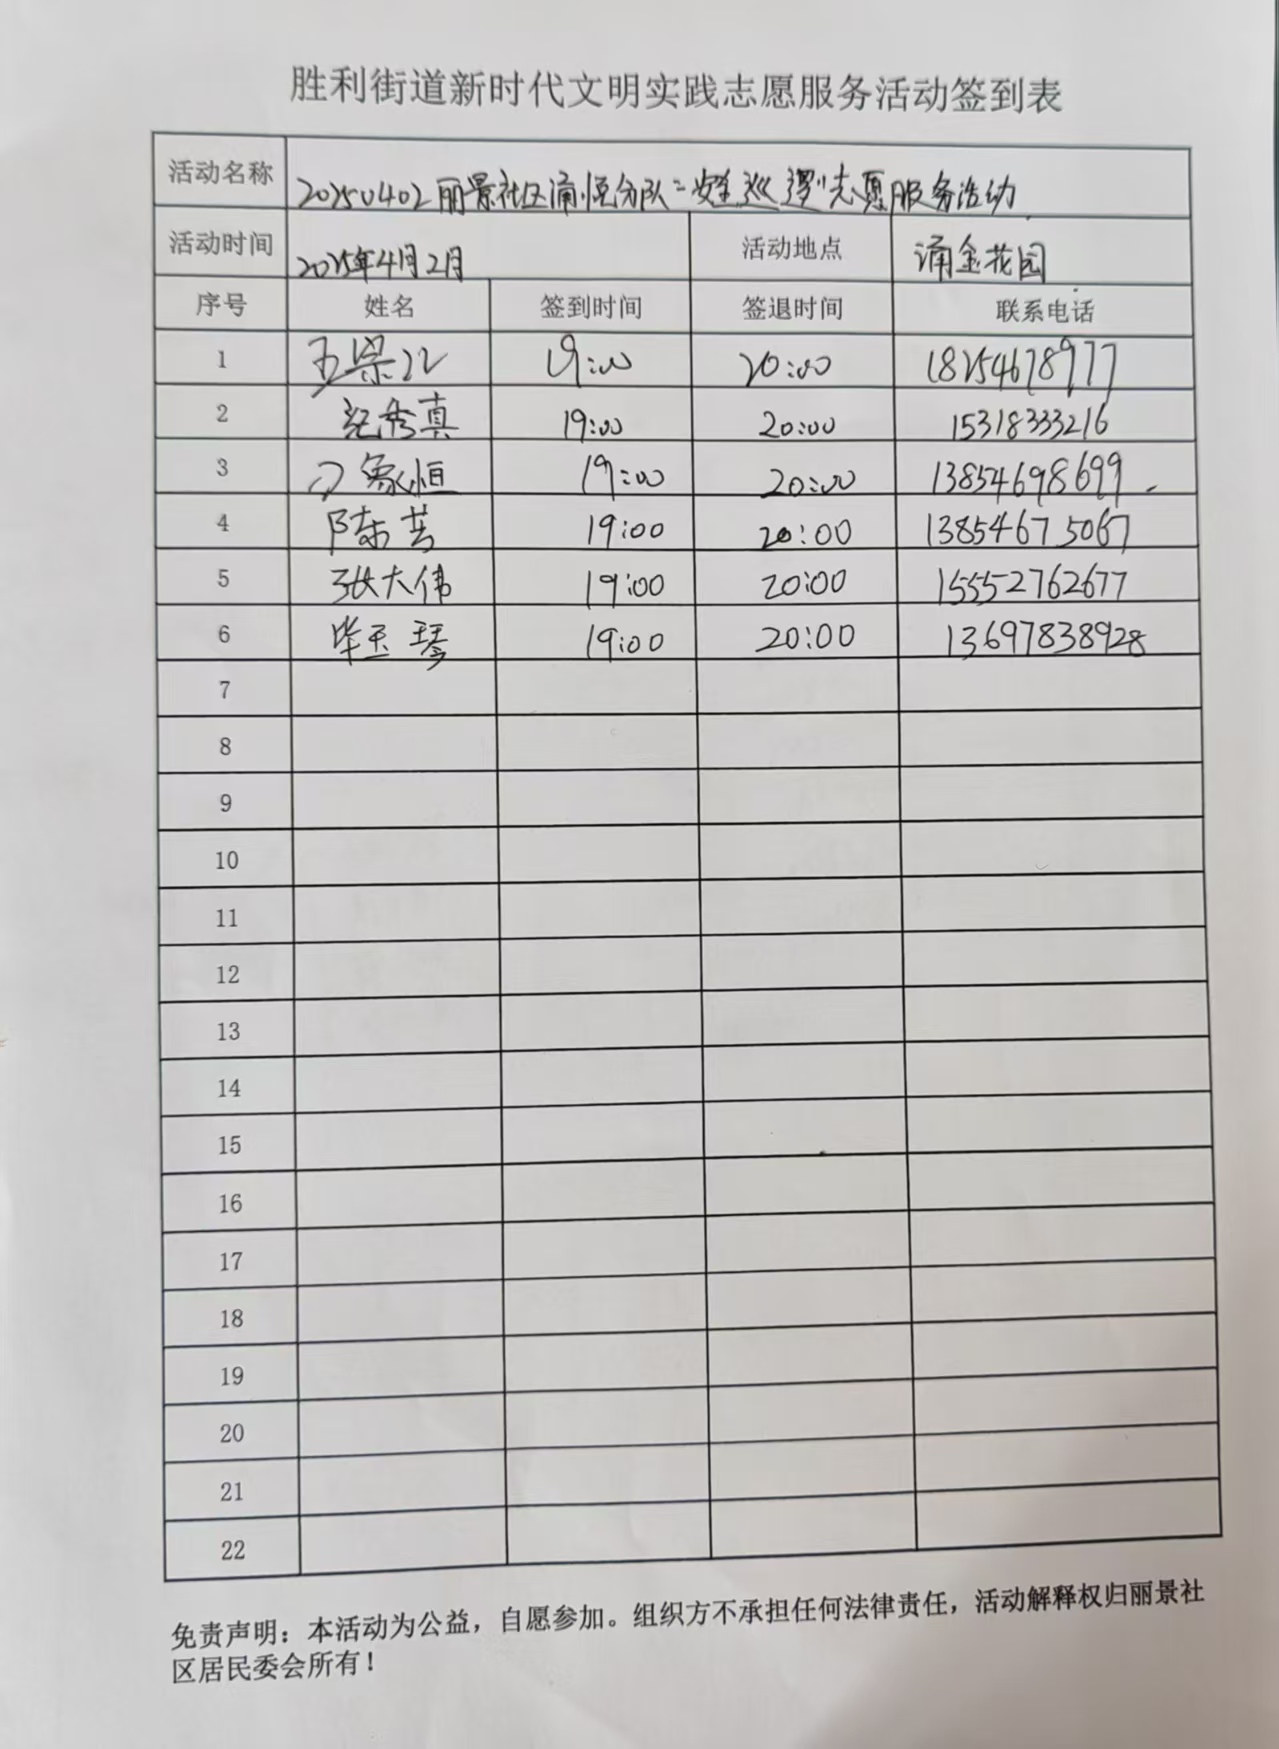 胜利街道新时代文明实践志愿服务活动签到表
活动名称 20250402丽景社区涌悦分队"安全巡逻"志愿服务活动
活动时间 2025年4月2日 活动地点 涌金花园
序号 姓名 签到时间 签退时间 联系电话
1 19:00 20:00 18254678977
2 纪秀真 19:00 20:00 15318333216
3 19:00 20:00 13854698699
4 陈芸 19:00 20:00 13854675067
5 张大伟 19:00 20:00 15552762677
6 毕玉琴 19:00 20:00 13697838928
7
8
9
10
11
12
13
14
15
16
17
18
19
20
21
22
免责声明：本活动为公益，自愿参加。组织方不承担任何法律责任，活动解释权归丽景社
区居民委会所有！